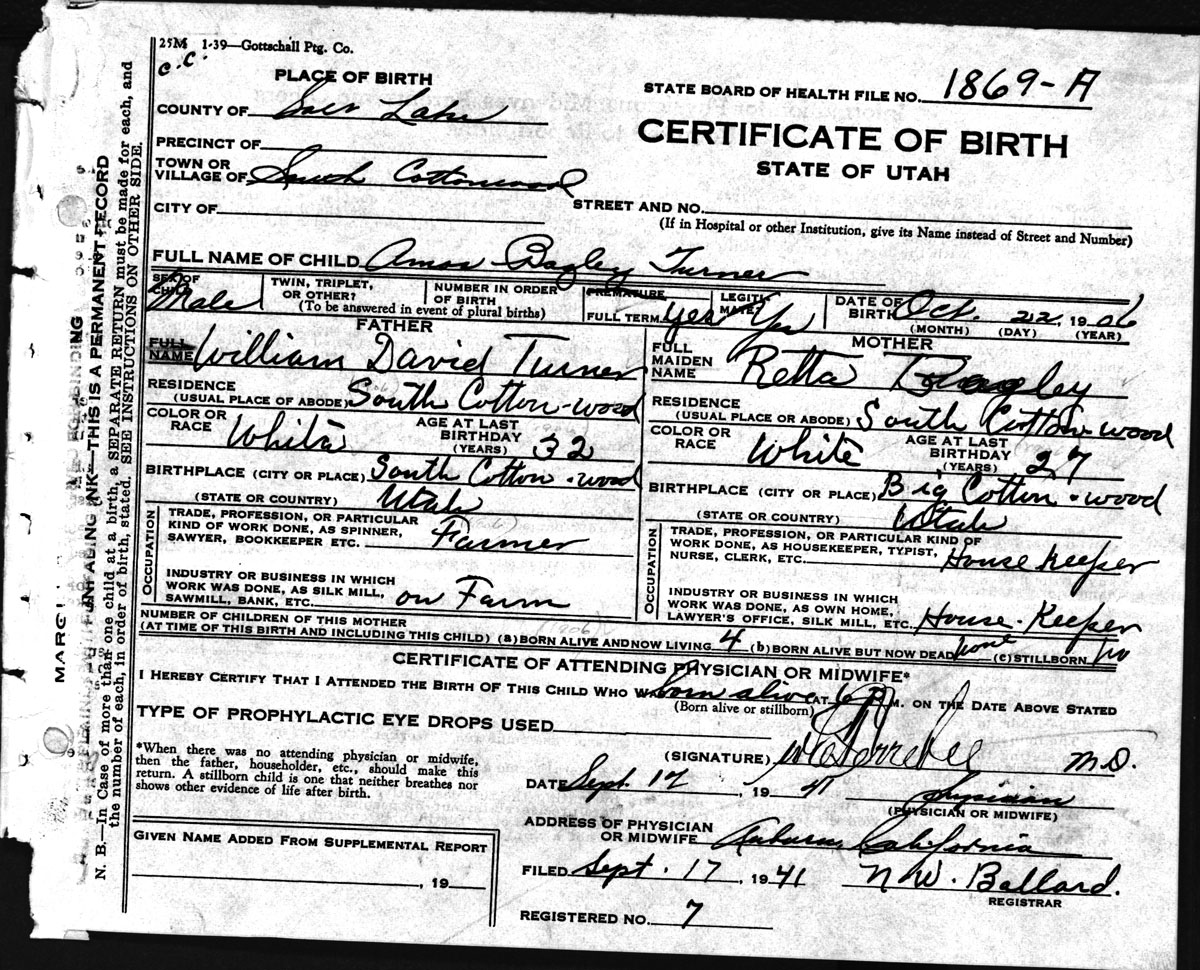 25M 1-39—Gottschall Ptg. Co.
C.C.
PLACE OF BIRTH
STATE BOARD OF HEALTH FILE NO. 1869-A
COUNTY OF Salt Lake
CERTIFICATE OF BIRTH
STATE OF UTAH
PRECINCT OF
TOWN OR VILLAGE OF South Cottonwood
CITY OF
STREET AND NO.
(If in Hospital or other Institution, give its Name instead of Street and Number)
FULL NAME OF CHILD Amos Bagley Turner
SEX OF CHILD Male
TWIN, TRIPLET, OR OTHER?
NUMBER IN ORDER OF BIRTH
(To be answered in event of plural births)
PREMATURE
FULL TERM Yes
LEGITIMATE? Yes
DATE OF BIRTH Oct. 22, 1906
(MONTH) (DAY) (YEAR)
FATHER
FULL NAME William David Turner
RESIDENCE (USUAL PLACE OF ABODE) South Cotton-wood
COLOR OR RACE White
AGE AT LAST BIRTHDAY (YEARS) 32
BIRTHPLACE (CITY OR PLACE) South Cotton-wood
(STATE OR COUNTRY) Utah
OCCUPATION
TRADE, PROFESSION, OR PARTICULAR
KIND OF WORK DONE, AS SPINNER,
SAWYER, BOOKKEEPER ETC. Farmer
INDUSTRY OR BUSINESS IN WHICH
WORK WAS DONE, AS SILK MILL,
SAWMILL, BANK, ETC. on Farm
MOTHER
FULL MAIDEN NAME Retta Bagley
RESIDENCE (USUAL PLACE OR ABODE) South Cotton-wood
COLOR OR RACE White
AGE AT LAST BIRTHDAY (YEARS) 27
BIRTHPLACE (CITY OR PLACE) Big Cotton-wood
(STATE OR COUNTRY) Utah
OCCUPATION
TRADE, PROFESSION, OR PARTICULAR KIND OF
WORK DONE, AS HOUSEKEEPER, TYPIST,
NURSE, CLERK, ETC. House Keeper
INDUSTRY OR BUSINESS IN WHICH
WORK WAS DONE, AS OWN HOME,
LAWYER'S OFFICE, SILK MILL, ETC. House-Keeper
NUMBER OF CHILDREN OF THIS MOTHER
(AT TIME OF THIS BIRTH AND INCLUDING THIS CHILD) (a) BORN ALIVE AND NOW LIVING 4 (b) BORN ALIVE BUT NOW DEAD none (c) STILLBORN no
CERTIFICATE OF ATTENDING PHYSICIAN OR MIDWIFE*
I HEREBY CERTIFY THAT I ATTENDED THE BIRTH OF THIS CHILD WHO WAS born alive AT 6 P.M. ON THE DATE ABOVE STATED
(Born alive or stillborn)
TYPE OF PROPHYLACTIC EYE DROPS USED
*When there was no attending physician or midwife,
then the father, householder, etc., should make this
return. A stillborn child is one that neither breathes nor
shows other evidence of life after birth.
(SIGNATURE) M.D.
DATE Sept. 12, 1941
physician
(PHYSICIAN OR MIDWIFE)
ADDRESS OF PHYSICIAN OR MIDWIFE Auburn California
FILED Sept. 17, 1941
N.W. Ballard.
REGISTRAR
REGISTERED NO. 7
GIVEN NAME ADDED FROM SUPPLEMENTAL REPORT
, 19
UNFADING INK—THIS IS A PERMANENT RECORD
N. B.—In Case of more than one child at a birth, a SEPARATE RETURN must be made for each, and
the number of each, in order of birth, stated. SEE INSTRUCTIONS ON OTHER SIDE.